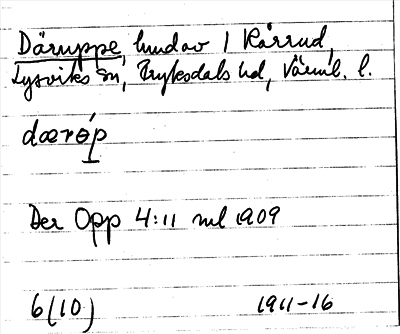 Däruppe, hmdav 1 Kårrud,
Lysviks sn, Fryksdals hd, Värml. l.
dærɵp
Der Opp 4:11 mtl 1909
6(10) 1911-16